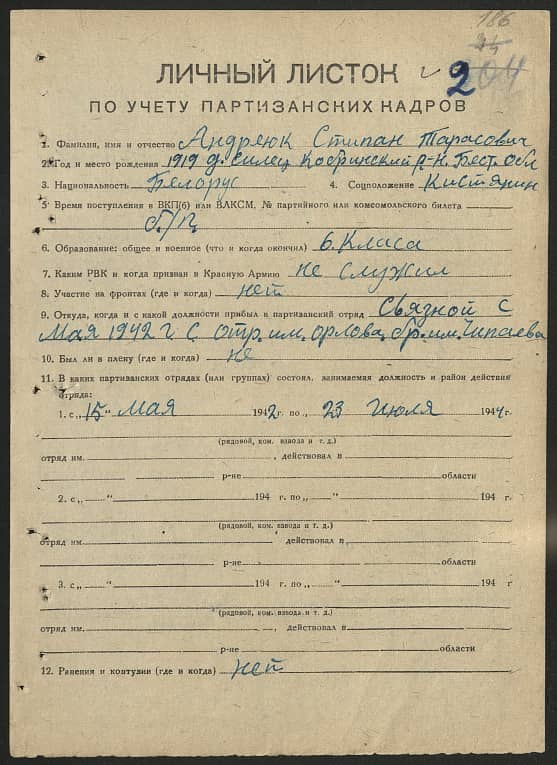 186
24
204
2
ЛИЧНЫЙ ЛИСТОК
ПО УЧЕТУ ПАРТИЗАНСКИХ КАДРОВ
1. Фамилия, имя и отчество Андреюк Стипан Тарасович
2. Год и место рождения 1919 д. Силец Кобринский р-н. Брест Обл
3. Национальность Белорус 4. Соцположение Кистянин
5. Время поступления в ВКП(б) или ВЛКСМ, № партийного или комсомольского билета
б/п
6. Образование: общее и военное (что и когда окончил) 6. Класа
7. Каким РВК и когда призван в Красную Армию не служил
8. Участие на фронтах (где и когда) нет
9. Откуда, когда и с какой должности прибыл в партизанский отряд Связной с
Мая 1942 г. с. Отр. им. Орлова, бр. им. Чипаева
10. Был ли в плену (где и когда) не
11. В каких партизанских отрядах (или группах) состоял, занимаемая должность и район действия
отряда:
1. с „15" Мая 1942 г. по „ 23 Июля 1944 г.
(рядовой, ком. взвода и т. д.)
отряд им. , действовал в
р-не области
2. с „ " 194 г. по „ " 194 г.
(рядовой, ком. взвода и т. д.)
отряд им. действовал в
р-не области
3. с „ " 194 г. по „ " 194 г.
(рядовой, ком. взвода и т. д.)
отряд им. , действовал в
р-не области
12. Ранения и контузии (где и когда) нет